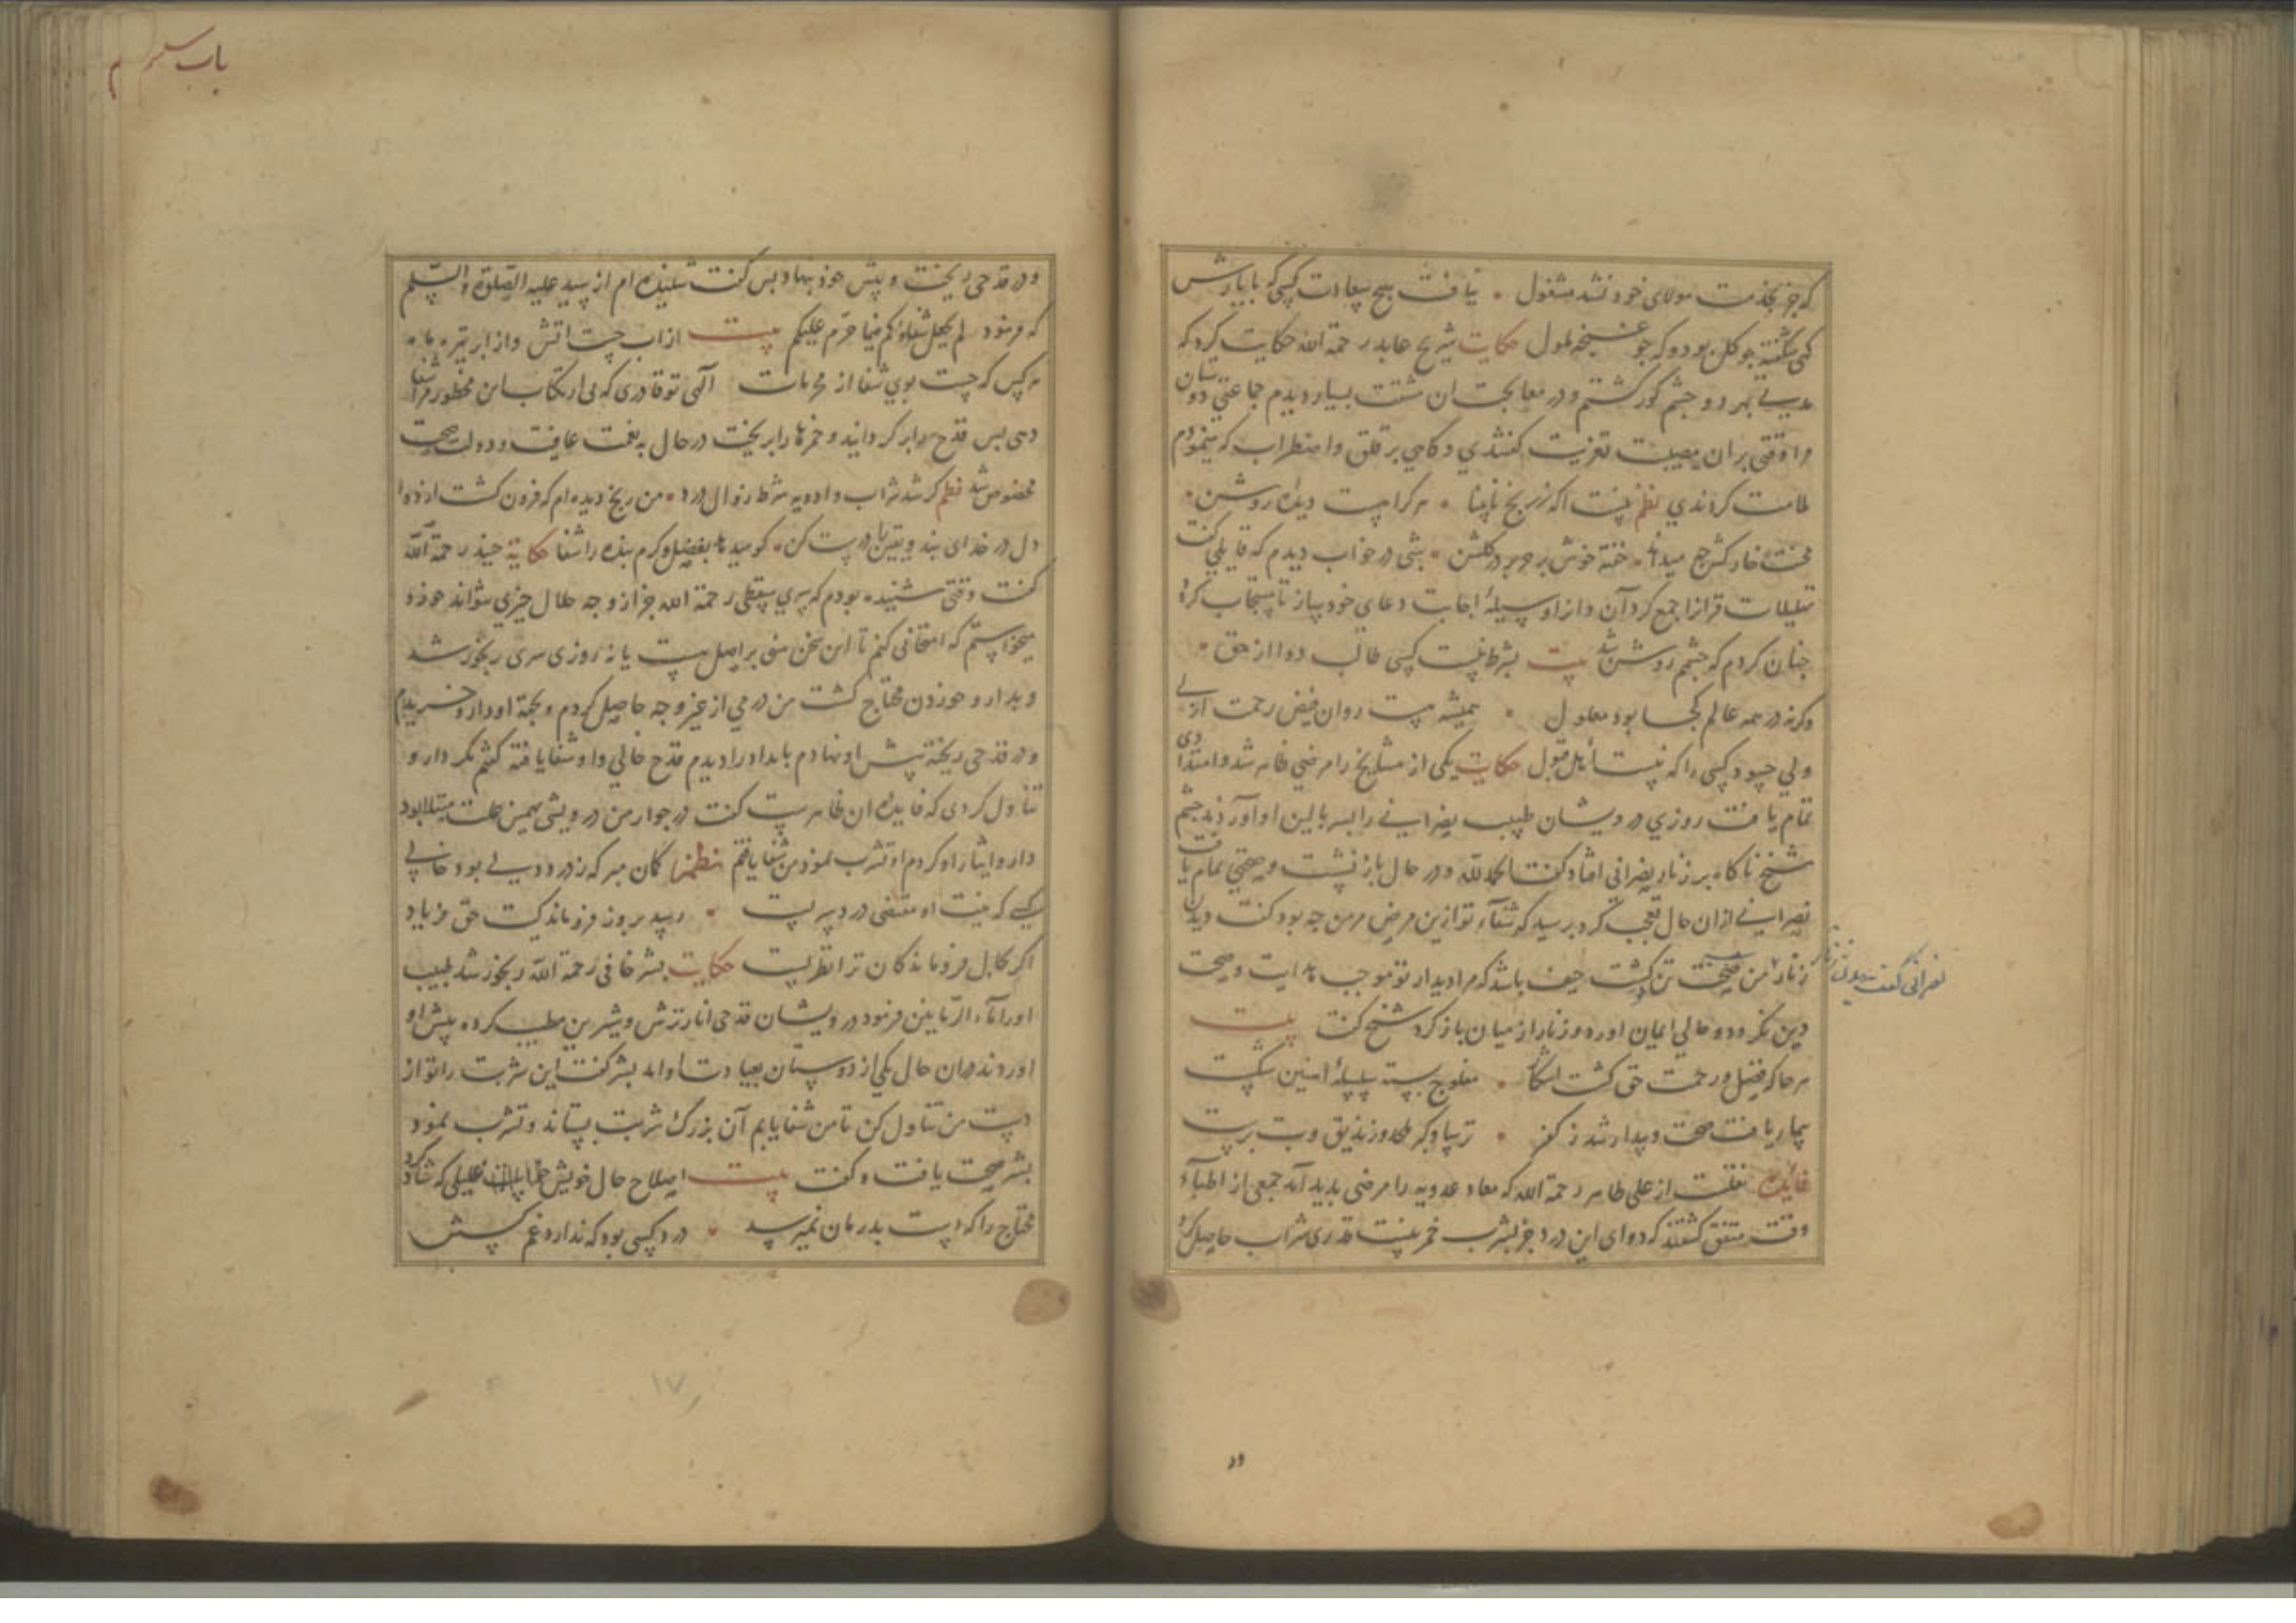 که جز بخدمت مولای خود نشد مشغول نیافت هیچ سعادت کسی که با یادش
کهی شکفته چو گل بود و که چو غنچه ملول حکایت شریح عابد رحمة الله حکایت کرد که
مدتی بهر دو چشم کور گشتم و در معالجت ان مشقت بسیار دیدم جماعتی دوستان
مرا وقتی بر ان مصیبت تعزیت کنندی و کاهی بر قلق و اضطراب که مینمودم
ملامت کردندی نظم نیست اکه ز رنج نابینا هرکرا هست دیده روشن
محنت خار کش چه میداند خفته خوش بر حریر در کلشن شبی در خواب دیدم که قایلی کفت
تهلیلات قرانرا جمع کرد آن و انرا وسیلهٔ اجابت دعای خود ساز تا مستجاب کردد
چنان کردم که چشمم روشن شد بیت بشرط نیست کسی طالب دوا از حق
وکرنه در همه عالم کجا بود معلول همیشه هست روان فیض رحمت ازلی
ولی چه سود کسی را که نیست اهل قبول حکایت یکی از مشایخ را مرضی ظاهر شد و امتدادی
تمام یافت روزی درویشان طبیب نصرانی را بسر بالین او آوردند چشم
شیخ ناکاه بر زنار نصرانی افتاد کفت الحمدلله و در حال باز نشست و صحتی تمام یافت
نصرانی از ان حال تعجب کرد پرسید که شفاء تو ازین مرض مزمن چه بود کفت دیدن
زنار نصرانی کفت دیدن زنار من صحت تن کشت حیف باشد که مرا دیدار تو موجب هدایت و صحت
دین نکردد و حالی ایمان اورد و زنار از میان باز کرد شیخ کفت بیت
هرجا که فضل و رحمت حق کشت اشکار مفلوج بسته سلسلهٔ اهنین شکست
بیمار یافت صحت و بیدار شد ز کفر ترسا و کبر ملحد و زندیق و بت پرست
فایده نقلست از علی طاهر رحمة الله که معاد عدویه را مرضی پدید آمد جمعی از اطباء
وقت متفق کشتند که دوای این درد جز بشرب خمر نیست قدری شراب حاصل کرد
در
باب سی ام
و در قدحی ریخت و پیش خود نهاد پس کفت شنیده ام از سید علیه الصلوة والسلم
که فرمود لم یجعل شفاؤکم فیما حرّم علیکم بیت از اب جست اتش و از ابر تیره ماه
هر کس که جست بوی شفا از محرمات آلهی تو قادری که بی ارتکاب این محظور مرا شفا
دهی پس قدح را بر کردانید و خمرها را بریخت در حال به نعمت عافیت و دولت صحت
مخصوص شد نظم کر شد شراب و ادویه شرط زوال درد من رنج دیده ام که فزون کشت از دوا
دل در خدای بند و یقین را درست کن کو میدهد بفضل و کرم بنده را شفا حکایة جنید رحمة الله
کفت وقتی شنیده بودم که سری سقطی رحمة الله جز از وجه حلال چیزی نتواند خورد
میخواستم که امتحانی کنم تا این سخن مبنی بر اصل هست یا نه روزی سری رنجور شد
و بدارو خوردن محتاج کشت من درمی از غیر وجه حاصل کردم و بجهة او دارو خریدم
و در قدحی ریخته پیش او نهادم بامداد را دیدم قدح خالی و او شفا یافته کفتم مکر دارو
تناول کردی که فایده ان ظاهرست کفت در جوار من درویشی بهمین علت مبتلا بود
دارو ایثار او کردم او شرب نمود من شفا یافتم نظم کمان مبر که ز درد دلی بود خالی
کسی که نیت او مقتضی درد سریست رسید بروز فروماندکیت حق فریاد
اکر بحال فروماندکان ترا نظریست حکایت بشر حافی رحمة الله رنجور شد طبیب
او را ماء الرمانین فرمود درویشان قدحی انار ترش و شیرین مطیب کرده پیش او
اوردند همان حال یکی از دوستان بعیادت او امد بشر کفت این شربت را تو از
دست من تناول کن تا من شفا یابم آن بزرک شربت بستاند و شرب نمود
بشر صحت یافت و کفت بیت اصلاح حال خویش علیلی که شاد کرد
محتاج را که دست بدرمان نمیرسد درد کسی بود که ندارد غم کسش
۱۷